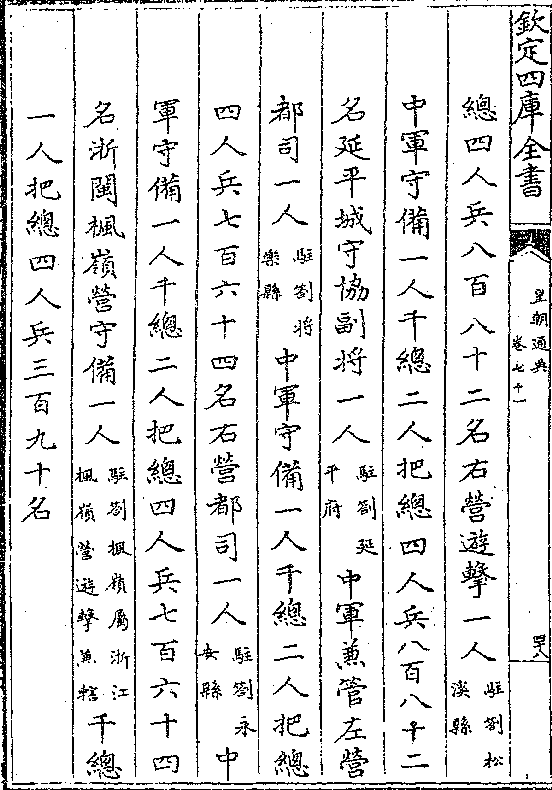 欽定四庫全書
皇朝通典
卷七十一
四十八
總四人兵八百八十二名右營遊擊一人駐劄松溪縣
中軍守備一人千總二人把總四人兵八百八十二
名延平城守協副將一人駐劄延平府中軍兼管左營
都司一人駐劄將樂縣中軍守備一人千總二人把總
四人兵七百六十四名右營都司一人駐劄永安縣中
軍守備一人千總二人把總四人兵七百六十四
名浙閩楓嶺營守備一人駐劄楓嶺屬浙江楓嶺營遊擊兼轄千總
一人把總四人兵三百九十名